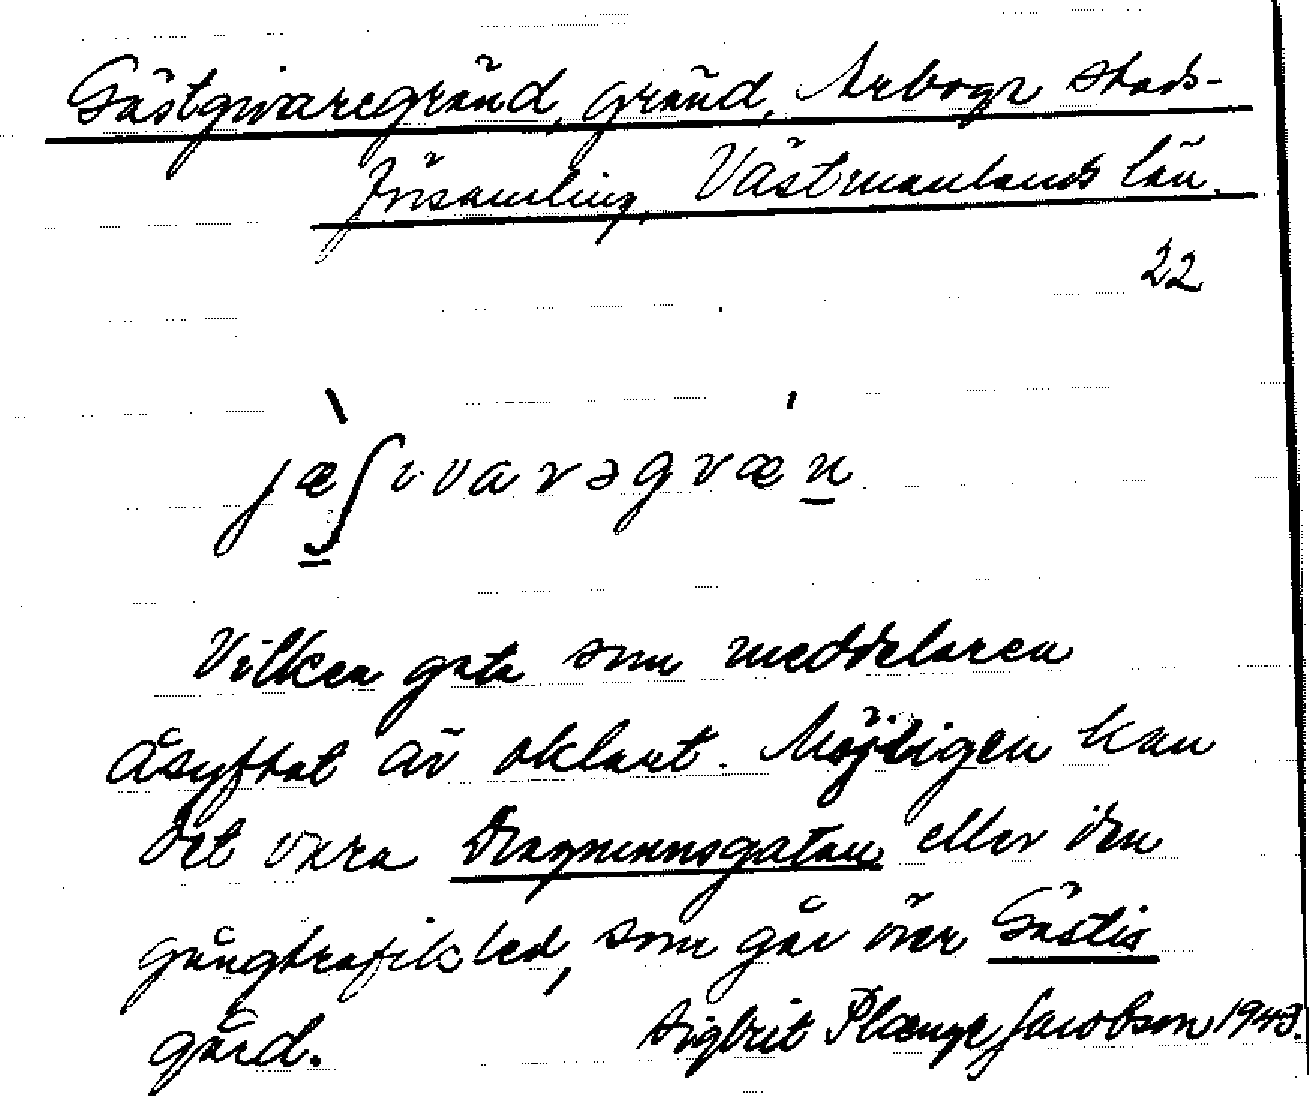 Gästgivaregränd, gränd, Arboga stads-
församling, Västmanlands län.
22
jæʃivarəgræn
Vilken gata som meddelaren
åsyftat är oklart. Möjligen kan
det vara Dragmunsgatan eller den
gångtrafikled, som går över Gästis
gård.
Sigbrit Plænge Jacobson 1943.